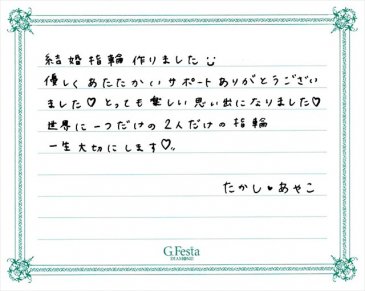 結婚指輪作りました
優しくあたたかいサポートありがとうござい
ました♡とっても楽しい思い出になりました♡
世界に一つだけの2人だけの指輪
一生大切にします♡。
たかし♥あやこ
G.Festa
DIAMOND